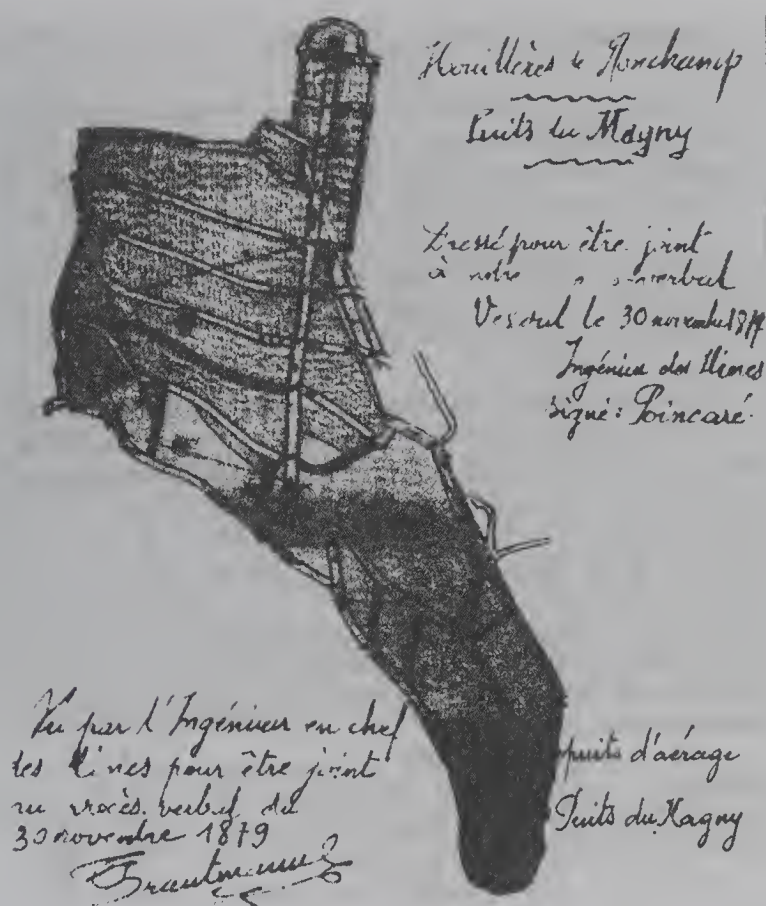 Houillères de Ronchamp
Puits du Magny
Dressé pour être joint
à notre verbal
Vesoul le 30 novembre 1879
Ingénieur des Mines
Signé: Poincaré.
Vu par l'Ingénieur en chef
des Mines pour être joint
au procès verbal du
30 novembre 1879
puits d'aérage
Puits du Magny